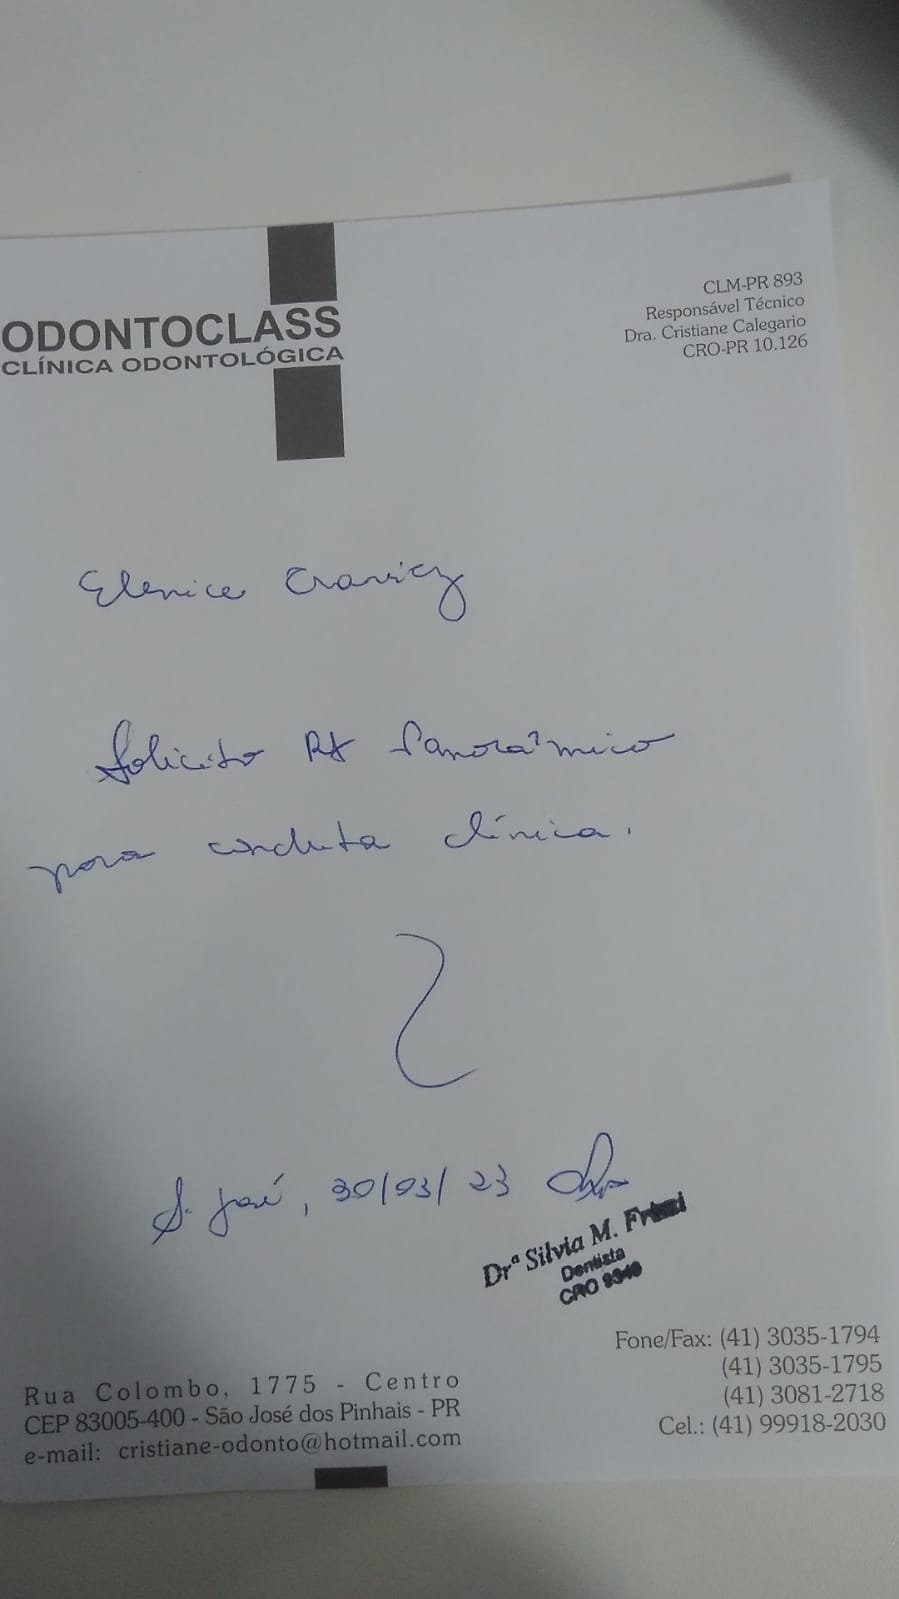 ODONTOCLASS
CLÍNICA ODONTOLÓGICA
CLM-PR 893
Responsável Técnico
Dra. Cristiane Calegario
CRO-PR 10.126
Elenice
Solicito RX Panorâmico
para conduta clínica.
S. José, 30/03/23
Drª Silvia M.
Dentista
CRO
Fone/Fax: (41) 3035-1794
(41) 3035-1795
(41) 3081-2718
Cel.: (41) 99918-2030
Rua Colombo, 1775 - Centro
CEP 83005-400 - São José dos Pinhais - PR
e-mail: cristiane-odonto@hotmail.com